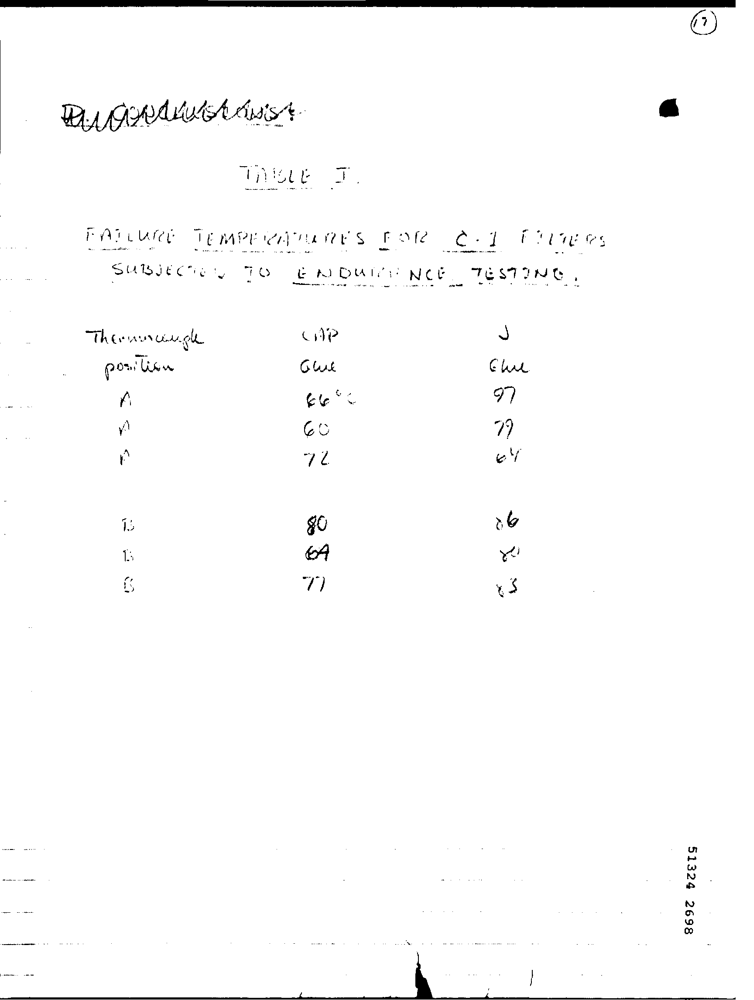 17
TABLE I.
FAILURE TEMPERATURES FOR C-1 FILTERS
SUBJECTED TO ENDURANCE TESTING.
Thermocouple CAP J
position Glue Glue
A 66°C 97
A 60 79
A 72 64
B 80 86
B 69 80
B 77 83
51324 2698